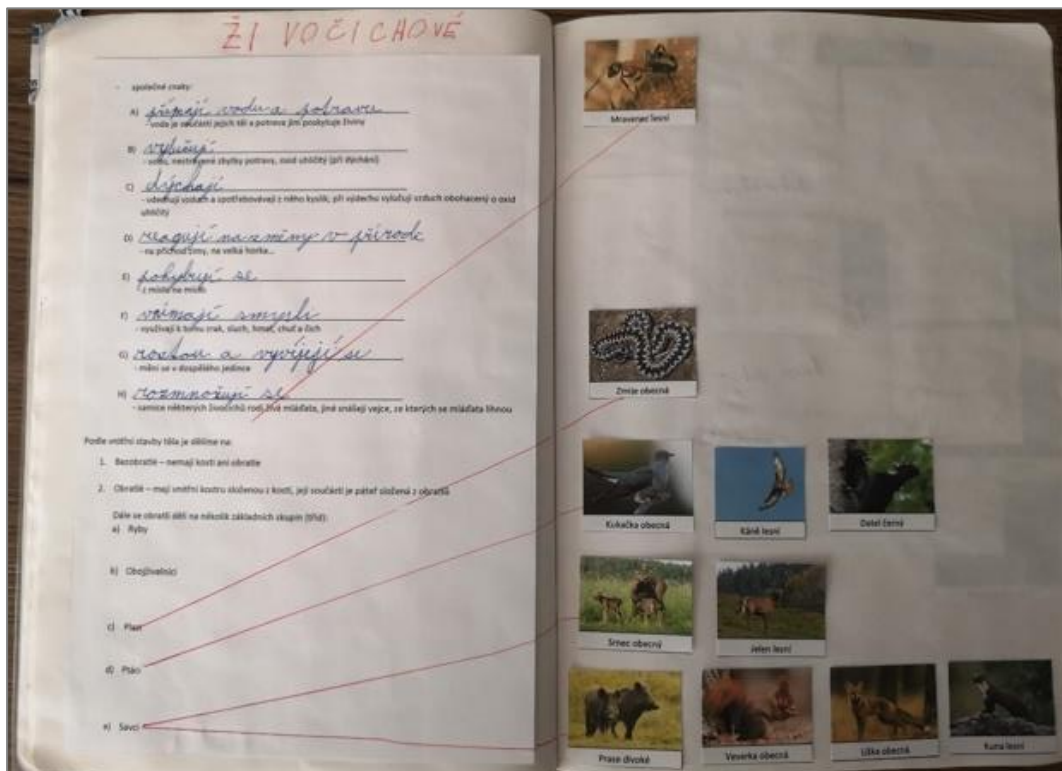 ŽIVOČICHOVÉ
- společné znaky:
A) přijmají vodu a potravu
- voda je součástí jejich těl a potrava jim poskytuje živiny
B) vylučují
- vodu, nestrávené zbytky potravy, oxid uhličitý (při dýchání)
C) dýchají
- vdechují vzduch a spotřebovávají z něho kyslík, při výdechu vylučují vzduch obohacený o oxid
uhličitý
D) reagují na změny v přírodě
- na příchod zimy, na velká horka...
E) pohybují se
z místa na místo
F) vnímají smysli
- využívají k tomu zrak, sluch, hmat, chuť a čich
G) rostou a vyvíjejí se
- mění se v dospělého jedince
H) rozmnožují se
- samice některých živočichů rodí živá mláďata, jiné snášejí vejce, ze kterých se mláďata líhnou
Podle vnitřní stavby těla je dělíme na:
1. Bezobratlé – nemají kosti ani obratle
2. Obratlé – mají vnitřní kostru složenou z kostí, její součástí je páteř složená z obratlů
Dále se obratlí dělí na několik základních skupin (tříd):
a) Ryby
b) Obojživelníci
c) Plazi
d) Ptáci
e) Savci
Mravenec lesní
Zmije obecná
Kukačka obecná
Káně lesní
Datel černý
Srnec obecný
Jelen lesní
Prase divoké
Veverka obecná
Liška obecná
Kuna lesní